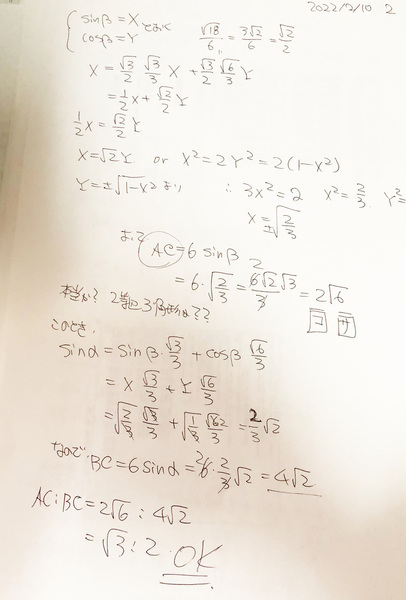 2022/2/10 2
{ sinβ = X とおく
cosβ = Y
√18/6 = 3√2/6 = √2/2
X = √3/2 √3/3 X + √3/2 √6/3 Y
= 1/2 X + √2/2 Y
1/2 X = √2/2 Y
X = √2 Y or X² = 2Y² = 2(1-X²)
Y = ±√1-X² より ∴ 3X² = 2 X² = 2/3 Y² =
X = ±√2/3
よって AC = 6 sinβ
= 6・√2/3 = 6√2√3/3 = 2√6
本当か? 2等辺3角形か??
ヨ サ
このとき、
sinα = sinβ・√3/3 + cosβ √6/3
= X √3/3 + Y √6/3
= √2/3 √3/3 + √1/3 √6/3 = 2/3 √2
なので BC = 6 sinα = 6・2/3 √2 = 4√2
AC:BC = 2√6 : 4√2
= √3 : 2 . OK